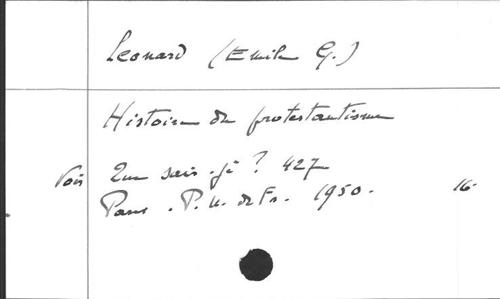 Leonard (Emile G.)
Histoire du protestantisme
Voir Que sais-je ? 427
Paris . P. U. de Fr. 1950. 16-